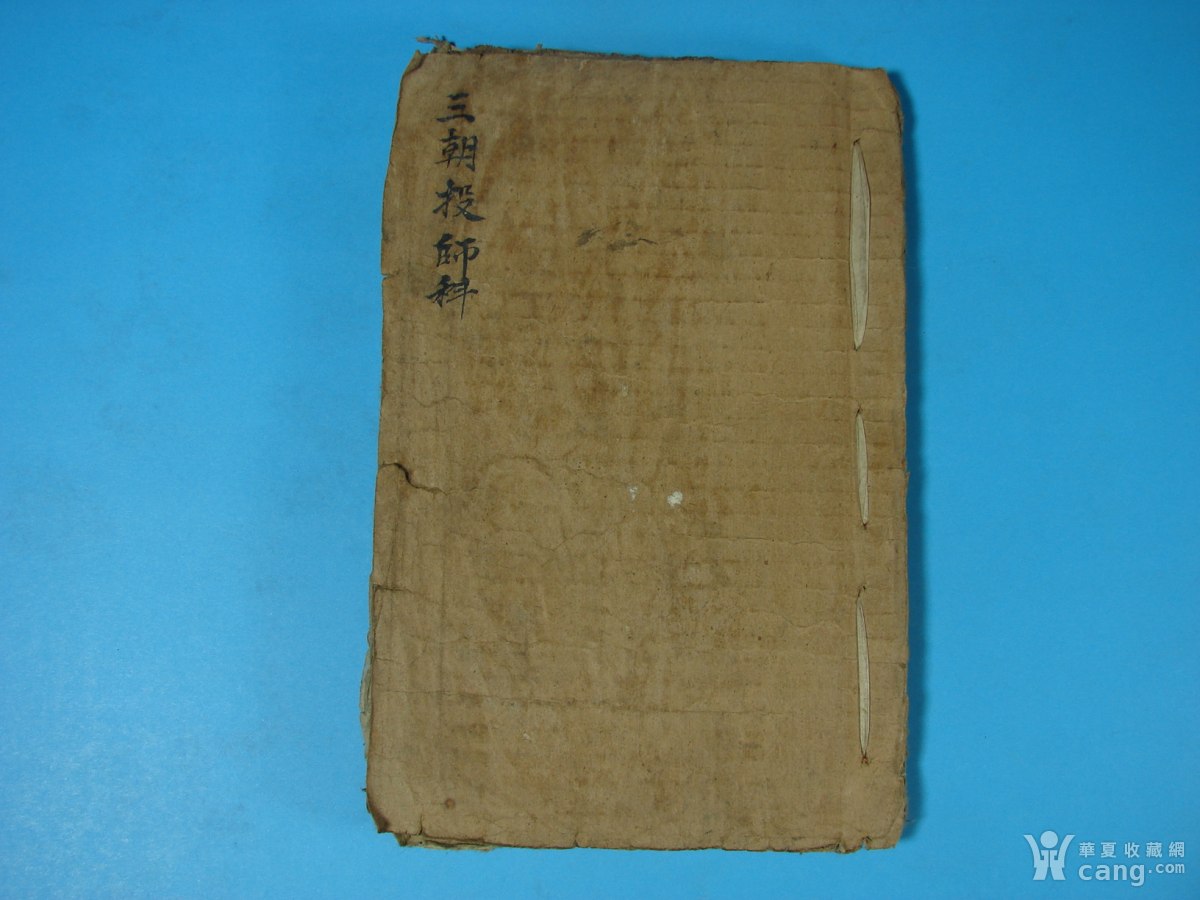 三朝投師科
華夏收藏網
cang.com